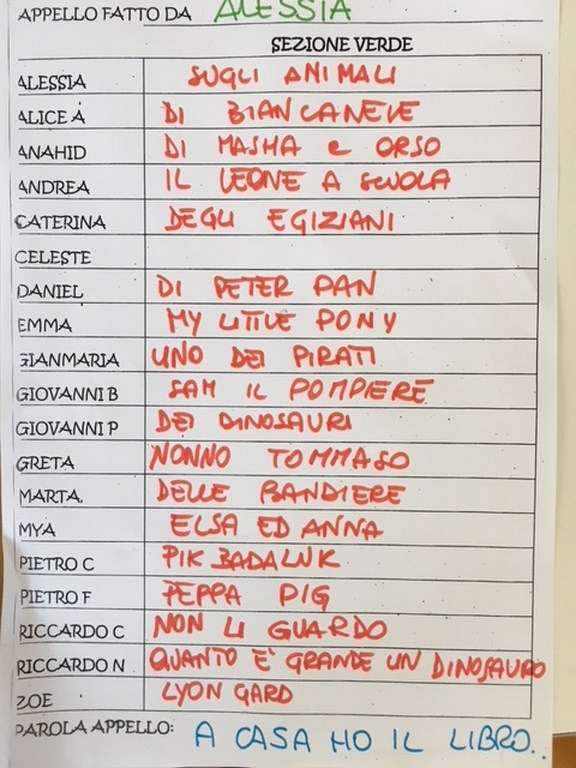 APPELLO FATTO DA ALESSIA
SEZIONE VERDE
ALESSIA SUGLI ANIMALI
ALICE A DI BIANCANEVE
ANAHID DI MASHA e ORSO
ANDREA IL LEONE A SCUOLA
CATERINA DEGLI EGIZIANI
CELESTE
DANIEL DI PETER PAN
EMMA MY LITTLE PONY
GIANMARIA UNO DEI PIRATI
GIOVANNI B SAM IL POMPIERE
GIOVANNI P DEI DINOSAURI
GRETA NONNO TOMMASO
MARTA. DELLE BANDIERE
MYA ELSA ED ANNA
PIETRO C PIK BADALUK
PIETRO F PEPPA PIG
RICCARDO C NON LI GUARDO
RICCARDO N QUANTO E' GRANDE UN DINOSAURO
ZOE LYON GARD
PAROLA APPELLO: A CASA HO IL LIBRO..